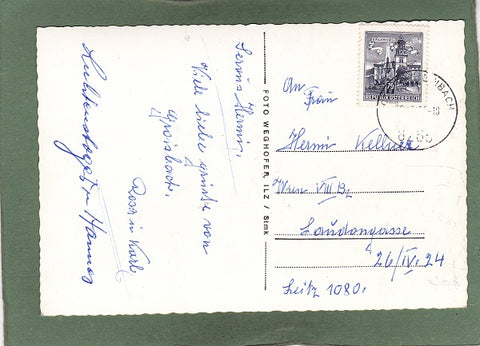 Servus Hermi,
Viele liebe Grüße von
Rosa u. Karl
Hannes
FOTO WEGHOFER, ILZ / Stmk
An
Frau
Hermi Kellner
Wien VIII Bz
Laudongasse
26/IV. 24
Leitz 1080.
REPUBLIK ÖSTERREICH
BACH